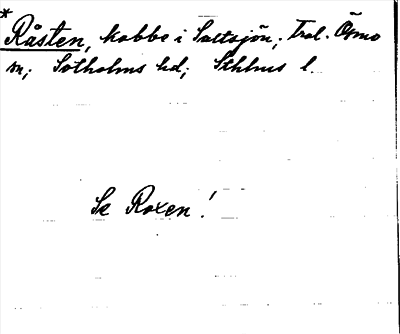 *
Råsten, kobbe i Saltsjön; Trol. Ösmo
sn; Sotholms hd; Sthlms l.
Se Roxen!